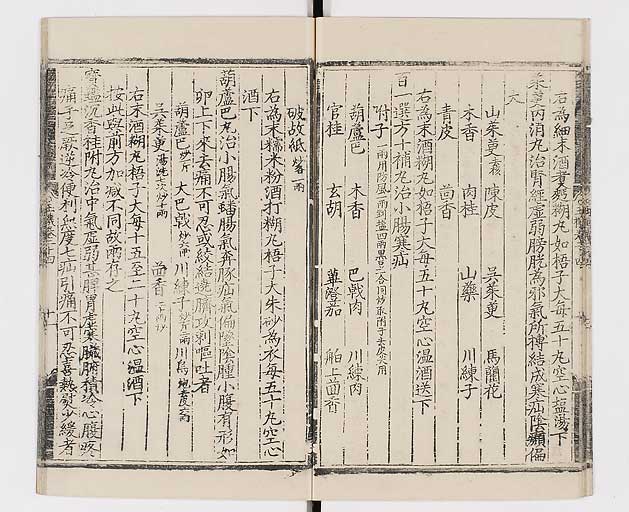 右為細末酒煮麪糊丸如梧子大每五十丸空心塩湯下
茱萸内消丸治腎經虛弱膀胱為邪氣所搏結成寒疝陰㿉偏
大
山茱萸 陳皮 吳茱萸 馬蘭花
木香 肉桂 山藥 川練子
青皮 茴香
右為末酒糊丸如梧子大每五十丸空心温酒送下
百一選方十補丸治小腸寒疝
附子一兩用防風一兩
葫蘆巴 木香 巴戟肉 川練肉
官桂 玄胡 蓽澄茄 舶上茴香
破故紙一兩
右為末糯米粉酒打糊丸梧子大朱砂為衣每五十丸空心
酒下
葫蘆巴丸治小腸氣蟠腸氣奔豚疝氣偏墜陰腫小腹有形如
卵上下來去痛不可忍或絞結遶臍攻刺嘔吐者
葫蘆巴 大巴戟 川練子 川烏
吳茱萸 茴香
右末酒糊丸梧子大每十五至二十丸空心温酒下
按此與前方加減不同故兩存之
沉香桂附丸治中氣虛弱甚脾胃虛寒臟腑積冷心腹疼
痛手足厥逆冷便利無度七疝引痛不可忍喜熱熨少緩者